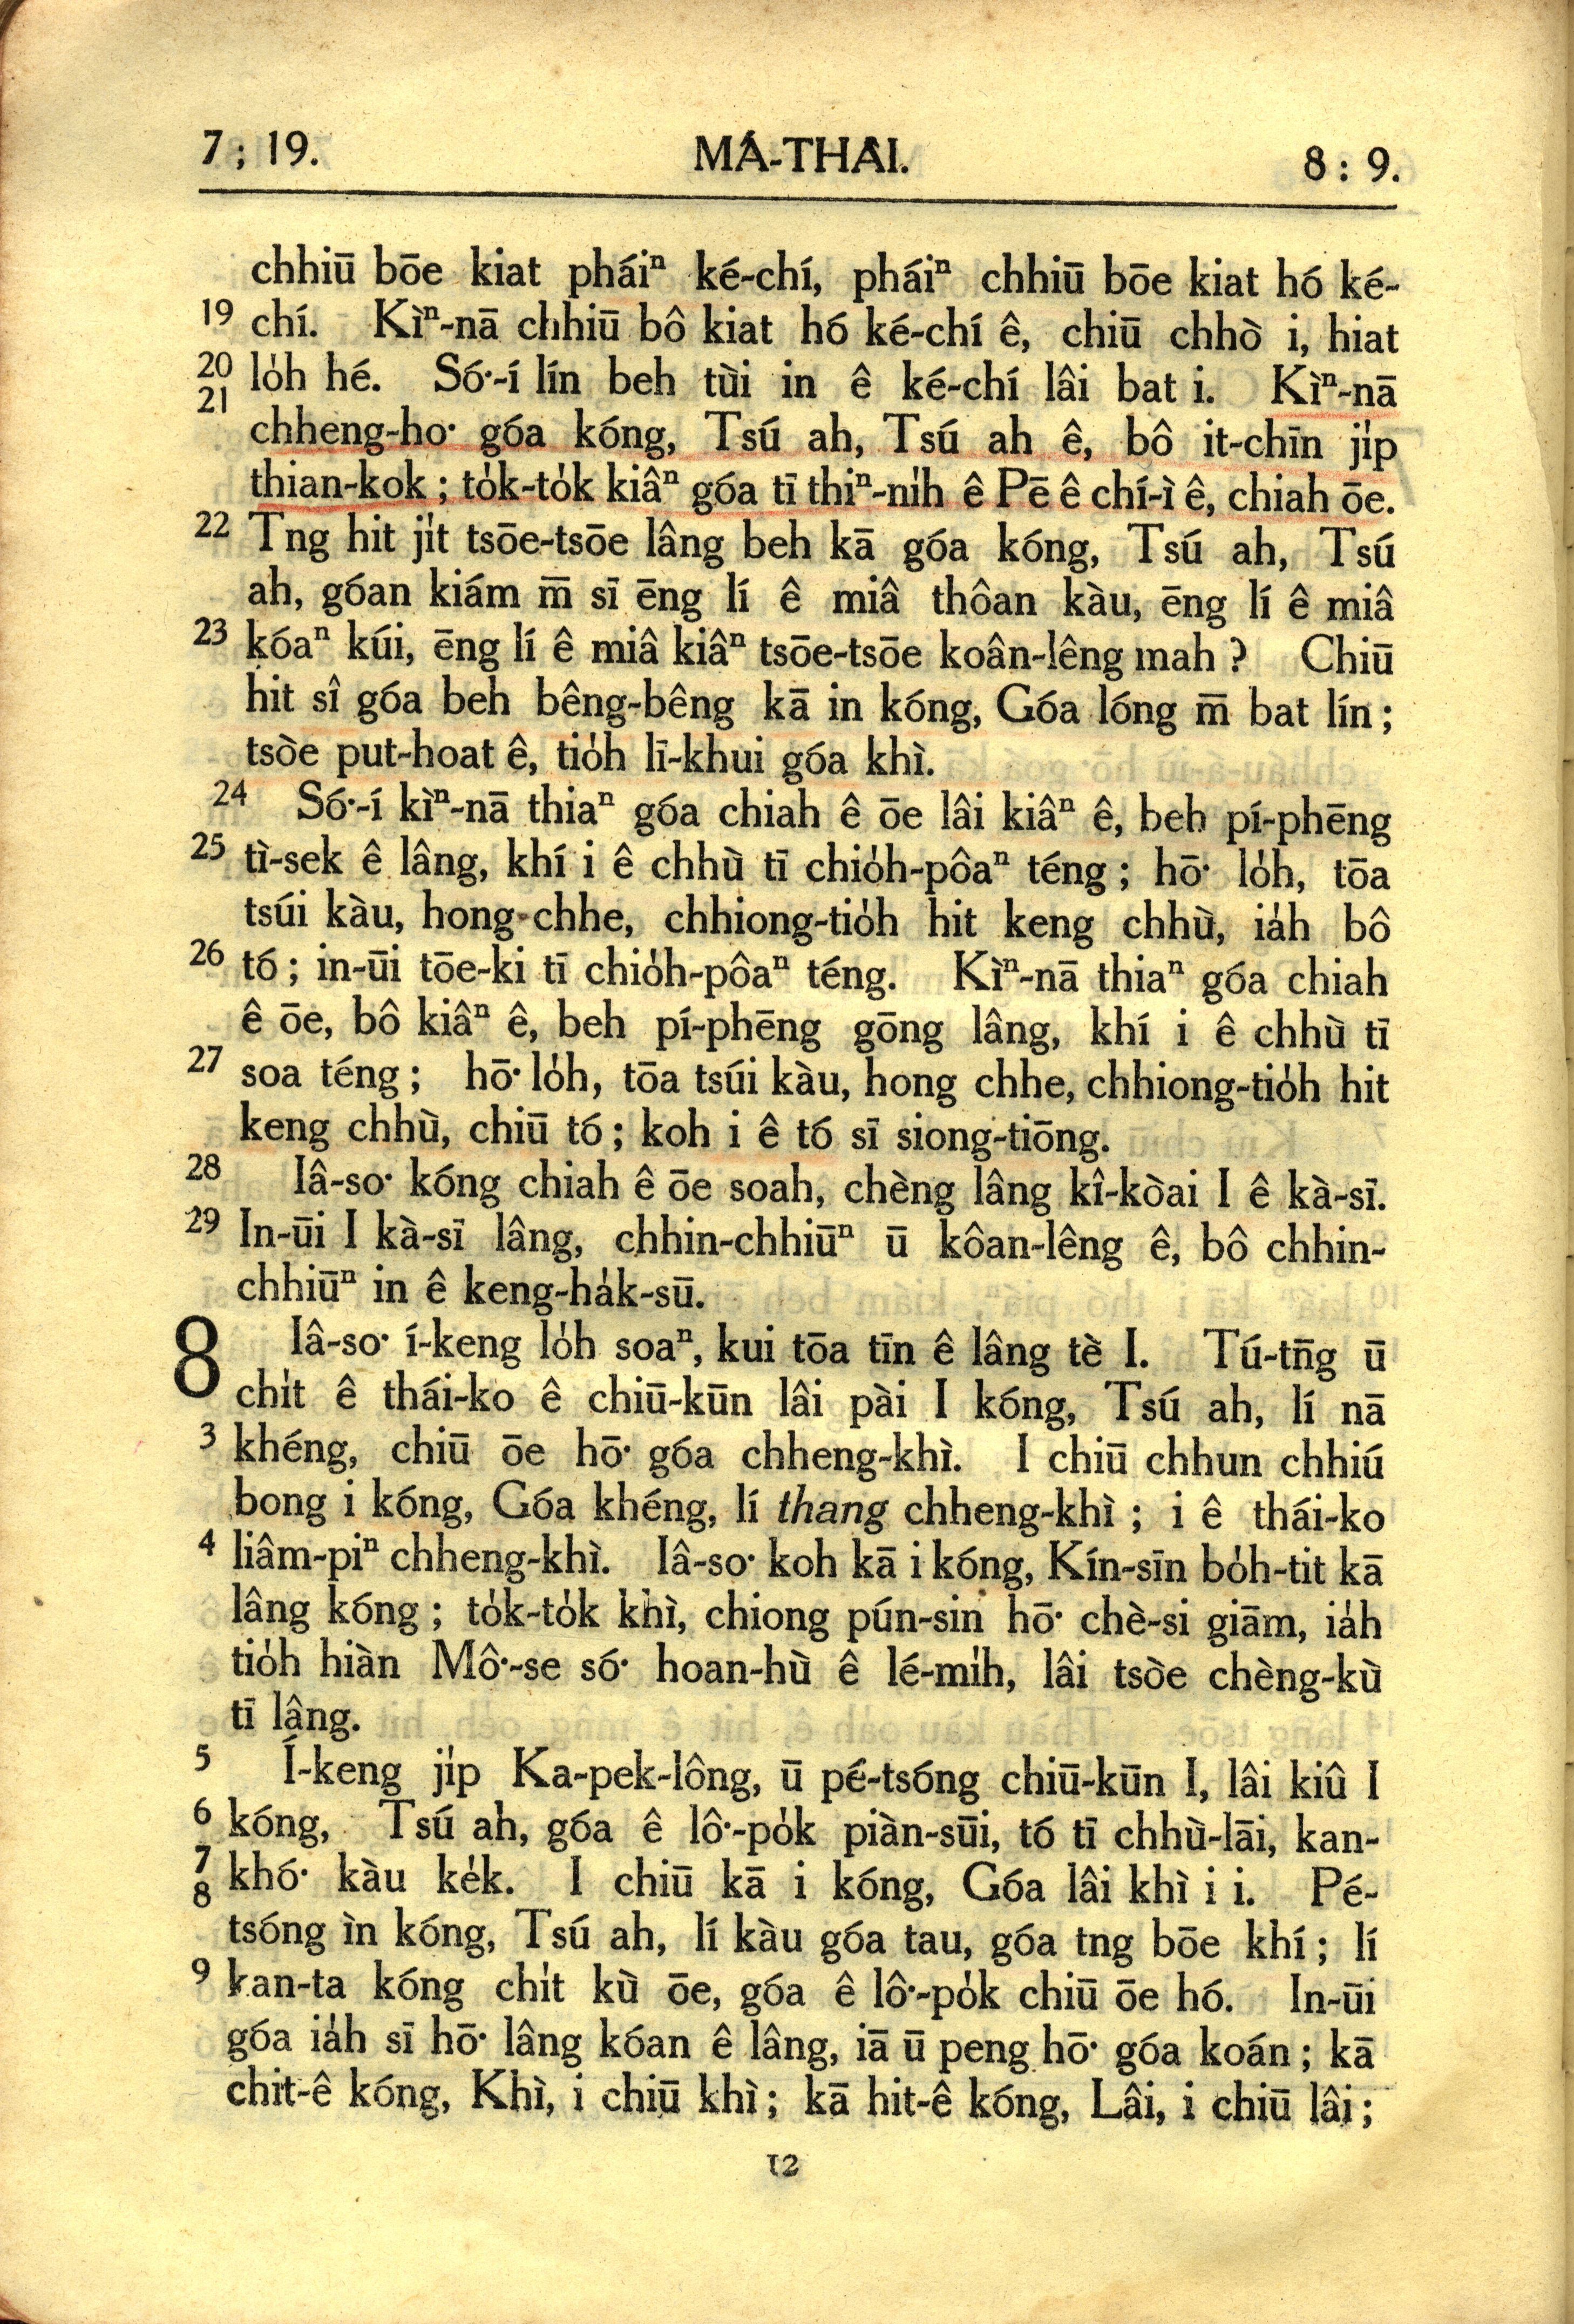 7 ; 19. MÁ-THÀI. 8 : 9.
chhiū bōe kiat pháiⁿ ké-chí, pháiⁿ chhiū bōe kiat hó ké-
19 chí. Kìⁿ-nā chhiū bô kiat hó ké-chí ê, chiū chhò i, hiat
20 lo̍h hé. Só͘-í lín beh tùi in ê ké-chí lâi bat i. Kìⁿ-nā
21 chheng-ho͘ góa kóng, Tsú ah, Tsú ah ê, bô it-chīn ji̍p
thian-kok ; to̍k-to̍k kiâⁿ góa tī thiⁿ-ni̍h ê Pē ê chí-ì ê, chiah ōe.
22 Tng hit ji̍t tsōe-tsōe lâng beh kā góa kóng, Tsú ah, Tsú
ah, góan kiám m̄ sī ēng lí ê miâ thôan kàu, ēng lí ê miâ
23 kóaⁿ kúi, ēng lí ê miâ kiâⁿ tsōe-tsōe koân-lêng mah ? Chiū
hit sî góa beh bêng-bêng kā in kóng, Góa lóng m̄ bat lín ;
tsòe put-hoat ê, tio̍h lī-khui góa khì.
24 Só͘-í kìⁿ-nā thiaⁿ góa chiah ê ōe lâi kiâⁿ ê, beh pí-phēng
25 tì-sek ê lâng, khí i ê chhù tī chio̍h-pôaⁿ téng ; hō͘ lo̍h, tōa
tsúi kàu, hong-chhe, chhiong-tio̍h hit keng chhù, ia̍h bô
26 tó ; in-ūi tōe-ki tī chio̍h-pôaⁿ téng. Kìⁿ-nā thiaⁿ góa chiah
ê ōe, bô kiâⁿ ê, beh pí-phēng gōng lâng, khí i ê chhù tī
27 soa téng ; hō͘ lo̍h, tōa tsúi kàu, hong chhe, chhiong-tio̍h hit
keng chhù, chiū tó ; koh i ê tó sī siong-tiōng.
28 Iâ-so͘ kóng chiah ê ōe soah, chèng lâng kî-kòai I ê kà-sī.
29 In-ūi I kà-sī lâng, chhin-chhiūⁿ ū kôan-lêng ê, bô chhin-
chhiūⁿ in ê keng-ha̍k-sū.
8 Iâ-so͘ í-keng lo̍h soaⁿ, kui tōa tīn ê lâng tè I. Tú-tn̄g ū
chi̍t ê thái-ko ê chiū-kūn lâi pài I kóng, Tsú ah, lí nā
3 khéng, chiū ōe hō͘ góa chheng-khì. I chiū chhun chhiú
bong i kóng, Góa khéng, lí thang chheng-khì ; i ê thái-ko
4 liâm-piⁿ chheng-khì. Iâ-so͘ koh kā i kóng, Kín-sīn bo̍h-tit kā
lâng kóng ; to̍k-to̍k khì, chiong pún-sin hō͘ chè-si giām, ia̍h
tio̍h hiàn Mô͘-se só͘ hoan-hù ê lé-mi̍h, lâi tsòe chèng-kù
tī lâng.
5 Í-keng ji̍p Ka-pek-lông, ū pé-tsóng chiū-kūn I, lâi kiû I
6 kóng, Tsú ah, góa ê lô͘-po̍k piàn-sūi, tó tī chhù-lāi, kan-
7 khó͘ kàu ke̍k. I chiū kā i kóng, Góa lâi khì i i. Pé-
8 tsóng ìn kóng, Tsú ah, lí kàu góa tau, góa tng bōe khí ; lí
9 kan-ta kóng chi̍t kù ōe, góa ê lô͘-po̍k chiū ōe hó. In-ūi
góa ia̍h sī hō͘ lâng kóan ê lâng, iā ū peng hō͘ góa koán ; kā
chit-ê kóng, Khì, i chiū khì ; kā hit-ê kóng, Lâi, i chiū lâi ;
12